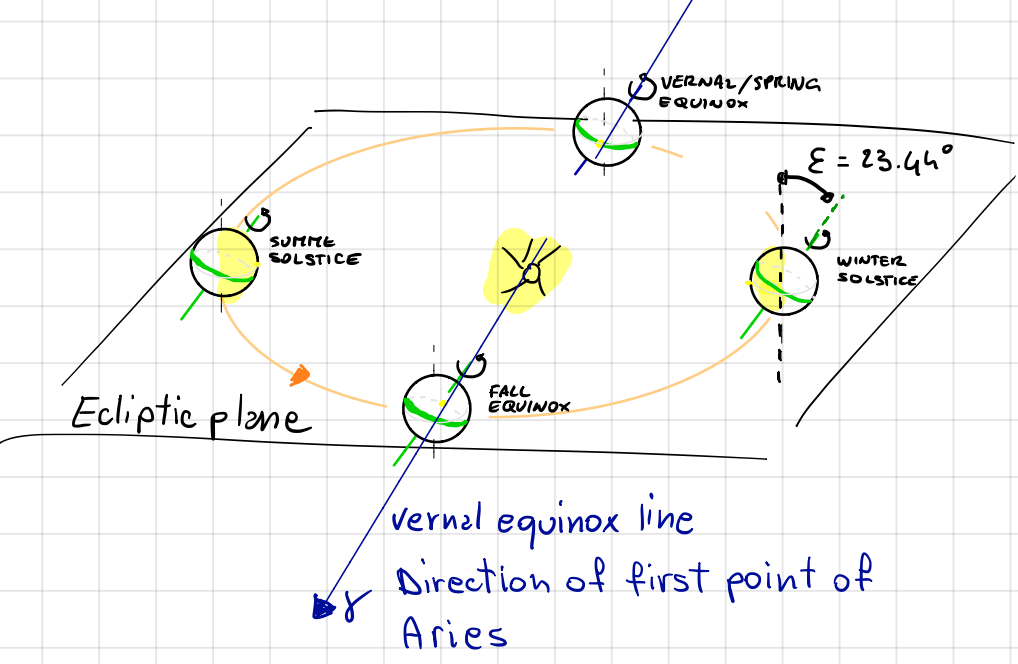 VERNAL/SPRING
EQUINOX
ε = 23.44°
SUMME
SOLSTICE
WINTER
SOLSTICE
FALL
EQUINOX
Ecliptic plane
vernal equinox line
γ Direction of first point of
Aries